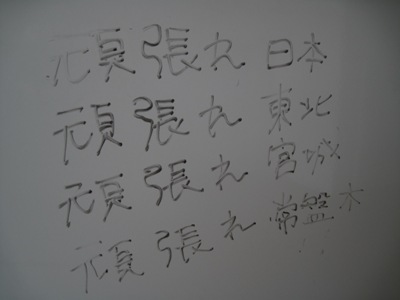 頑張れ 日本
頑張れ 東北
頑張れ 宮城
頑張れ 常盤木